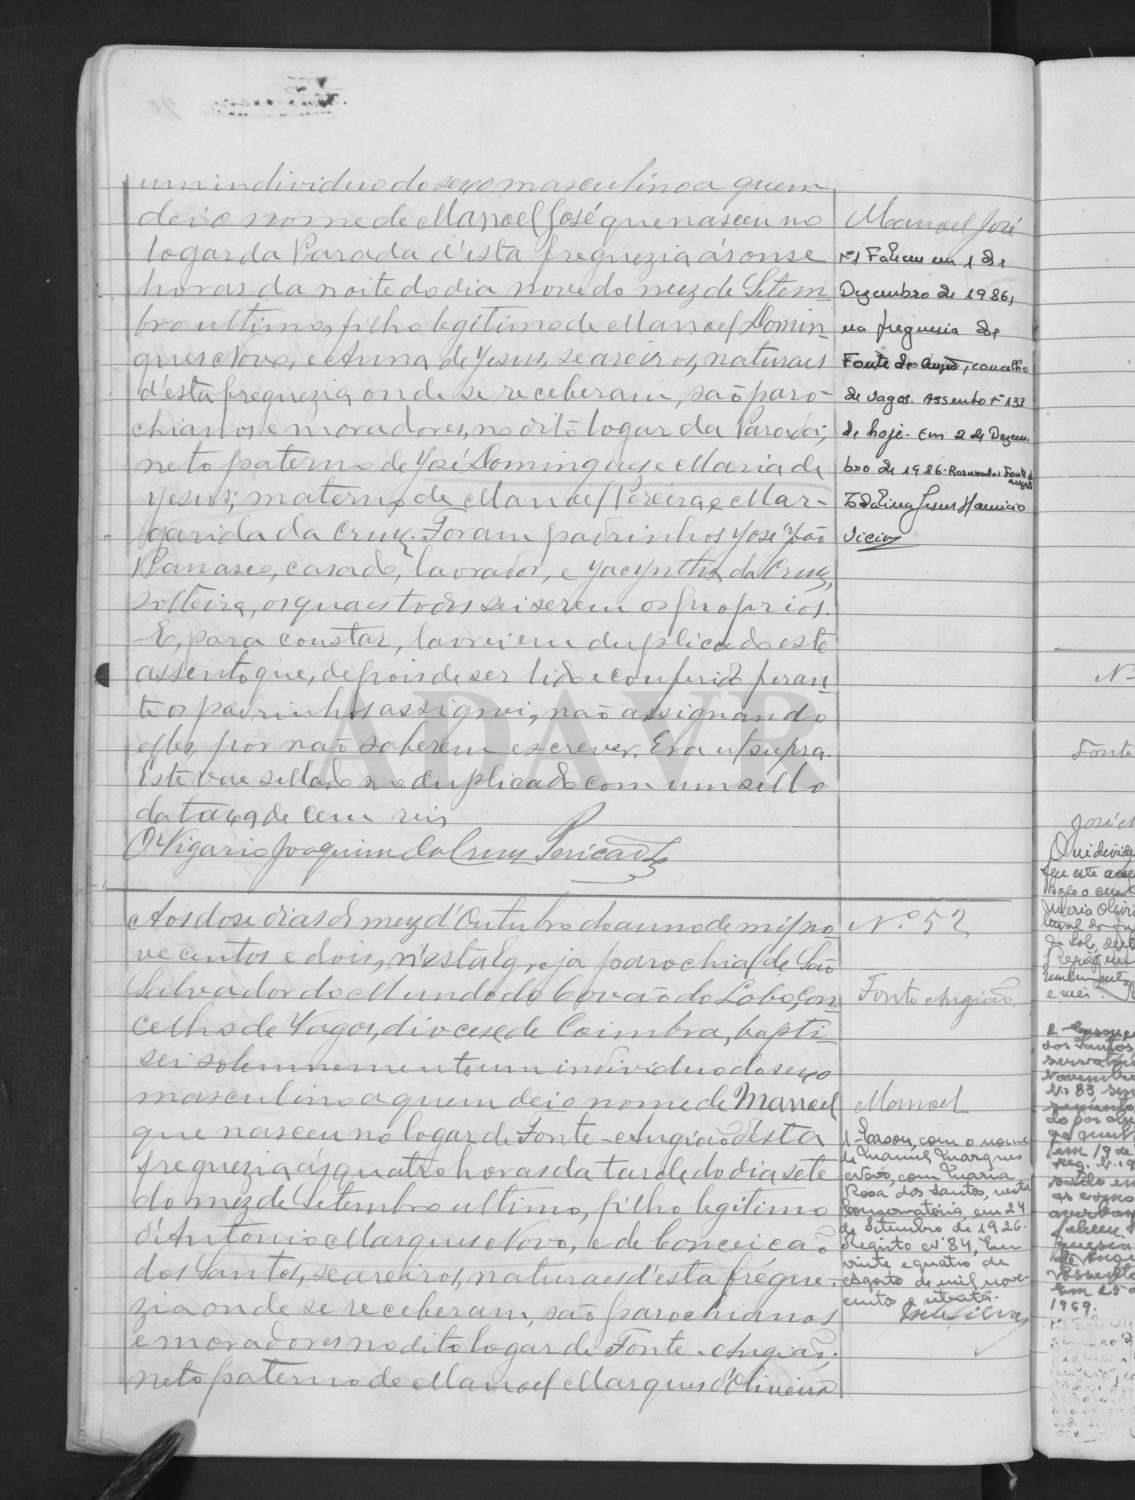 um individuo do sexo masculino a quem
dei o nome de Manoel José que nasceu no
logar da Parada d'esta freguezia ás onse
horas da noite do dia nove do mez de Setem-
bro ultimo, filho legitimo de Manoel Domin-
gues Novo, e Anna de Jesus, seareiros, naturaes
d'esta freguezia onde se receberam, são paro-
chianos e moradores, no dito logar da Parada;
neto paterno de José Domingues e Maria de
Jesus; materno de Manoel Pereira e Mar-
garida da Cruz. Foram padrinhos José João
casado, lavrador, e Jacyntha da Cruz,
solteira, os quaes todos sei serem os proprios.
E, para constar, lavrei em duplicado este
assento que, depois de ser lido e conferido peran-
te os padrinhos assignei, não assignando
elles por não saberem escrever. Era ut supra.
Este vae sellado no duplicado com um sello
da taxa de cem reis
O Vigario Joaquim da Cruz Pericão
Manoel José
Nº1 Faleceu em 1 de
Dezembro de 1986,
na freguesia de
Fonte de Angião, concelho
de Vagos. Assento nº 133
de hoje. Em 2 de Dezem-
bro de 1986.
Jesus
Aos dose dias do mez d'Outubro do anno de mil no-
vecentos e dois, n'esta Igreja parochial de São
Salvador do Mundo do Covão do Lobo, con-
celho de Vagos, diocese de Coimbra, bapti-
sei solemnemente um individuo do sexo
masculino a quem dei o nome de Manoel
que nasceu no logar de Fonte-Angião d'esta
freguezia ás quatro horas da tarde do dia sete
do mez de Setembro ultimo, filho legitimo
d'Antonio Marques Novo, e de Conceição
dos Santos, seareiros, naturaes d'esta fregue-
zia onde se receberam, são parochianos
e moradores no dito logar de Fonte-Angião;
neto paterno de Manoel Marques d'Oliveira
Nº 52
Fonte Angião
Manoel
1-Casou, com o nome
de Manuel Marques
Novo, com Maria
Rosa dos Santos, nesta
Conservatória, em 24
de Setembro de 1926.
Registo nº 84, Em
vinte e quatro de
Agosto de mil nove-
centos e
Silva
Nº
Fonte
José
dos Santos
Em 25
1969.
ADAVR